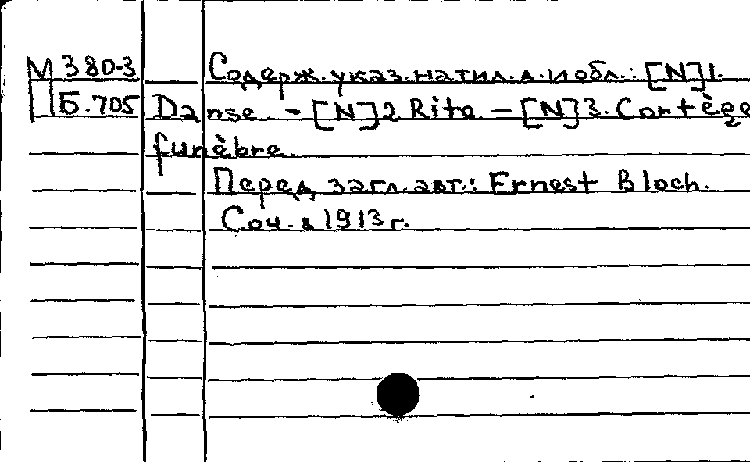 М 380-3 Содерж. указ. на тил. л. и обл.: [N]1.
П Б.705 Danse. - [N]2 Rite. - [N]3. Cortège
funèbre.
Перед загл. авт.: Ernest Bloch.
Соч. в 1913 г.